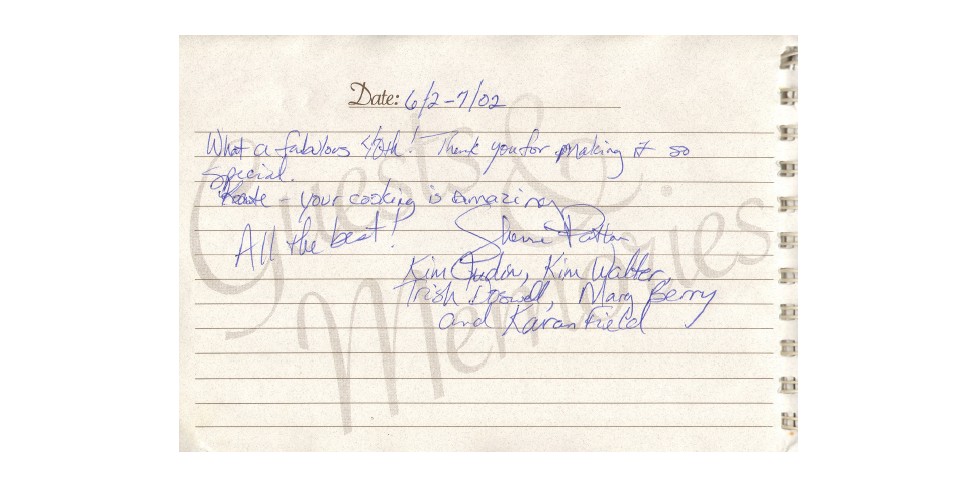 Guests & Memories
Date: 6/2-7/02
What a fabulous 40th! Thank you for making it so
special.
- your cooking is amazing
All the best! Sherri Patton
Kim, Kim Walter,
Trish, Mary Berry
and Karan Field